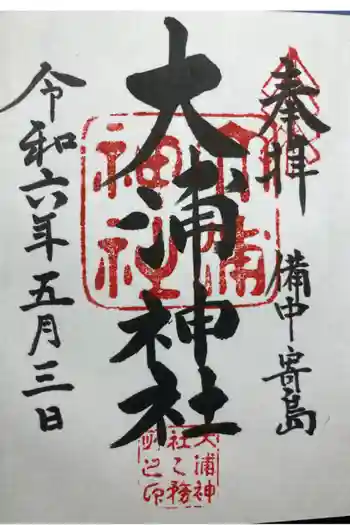 奉拝
備中寄島
大浦神社
令和六年五月三日
大浦
神社
大浦神
社之務
所之印